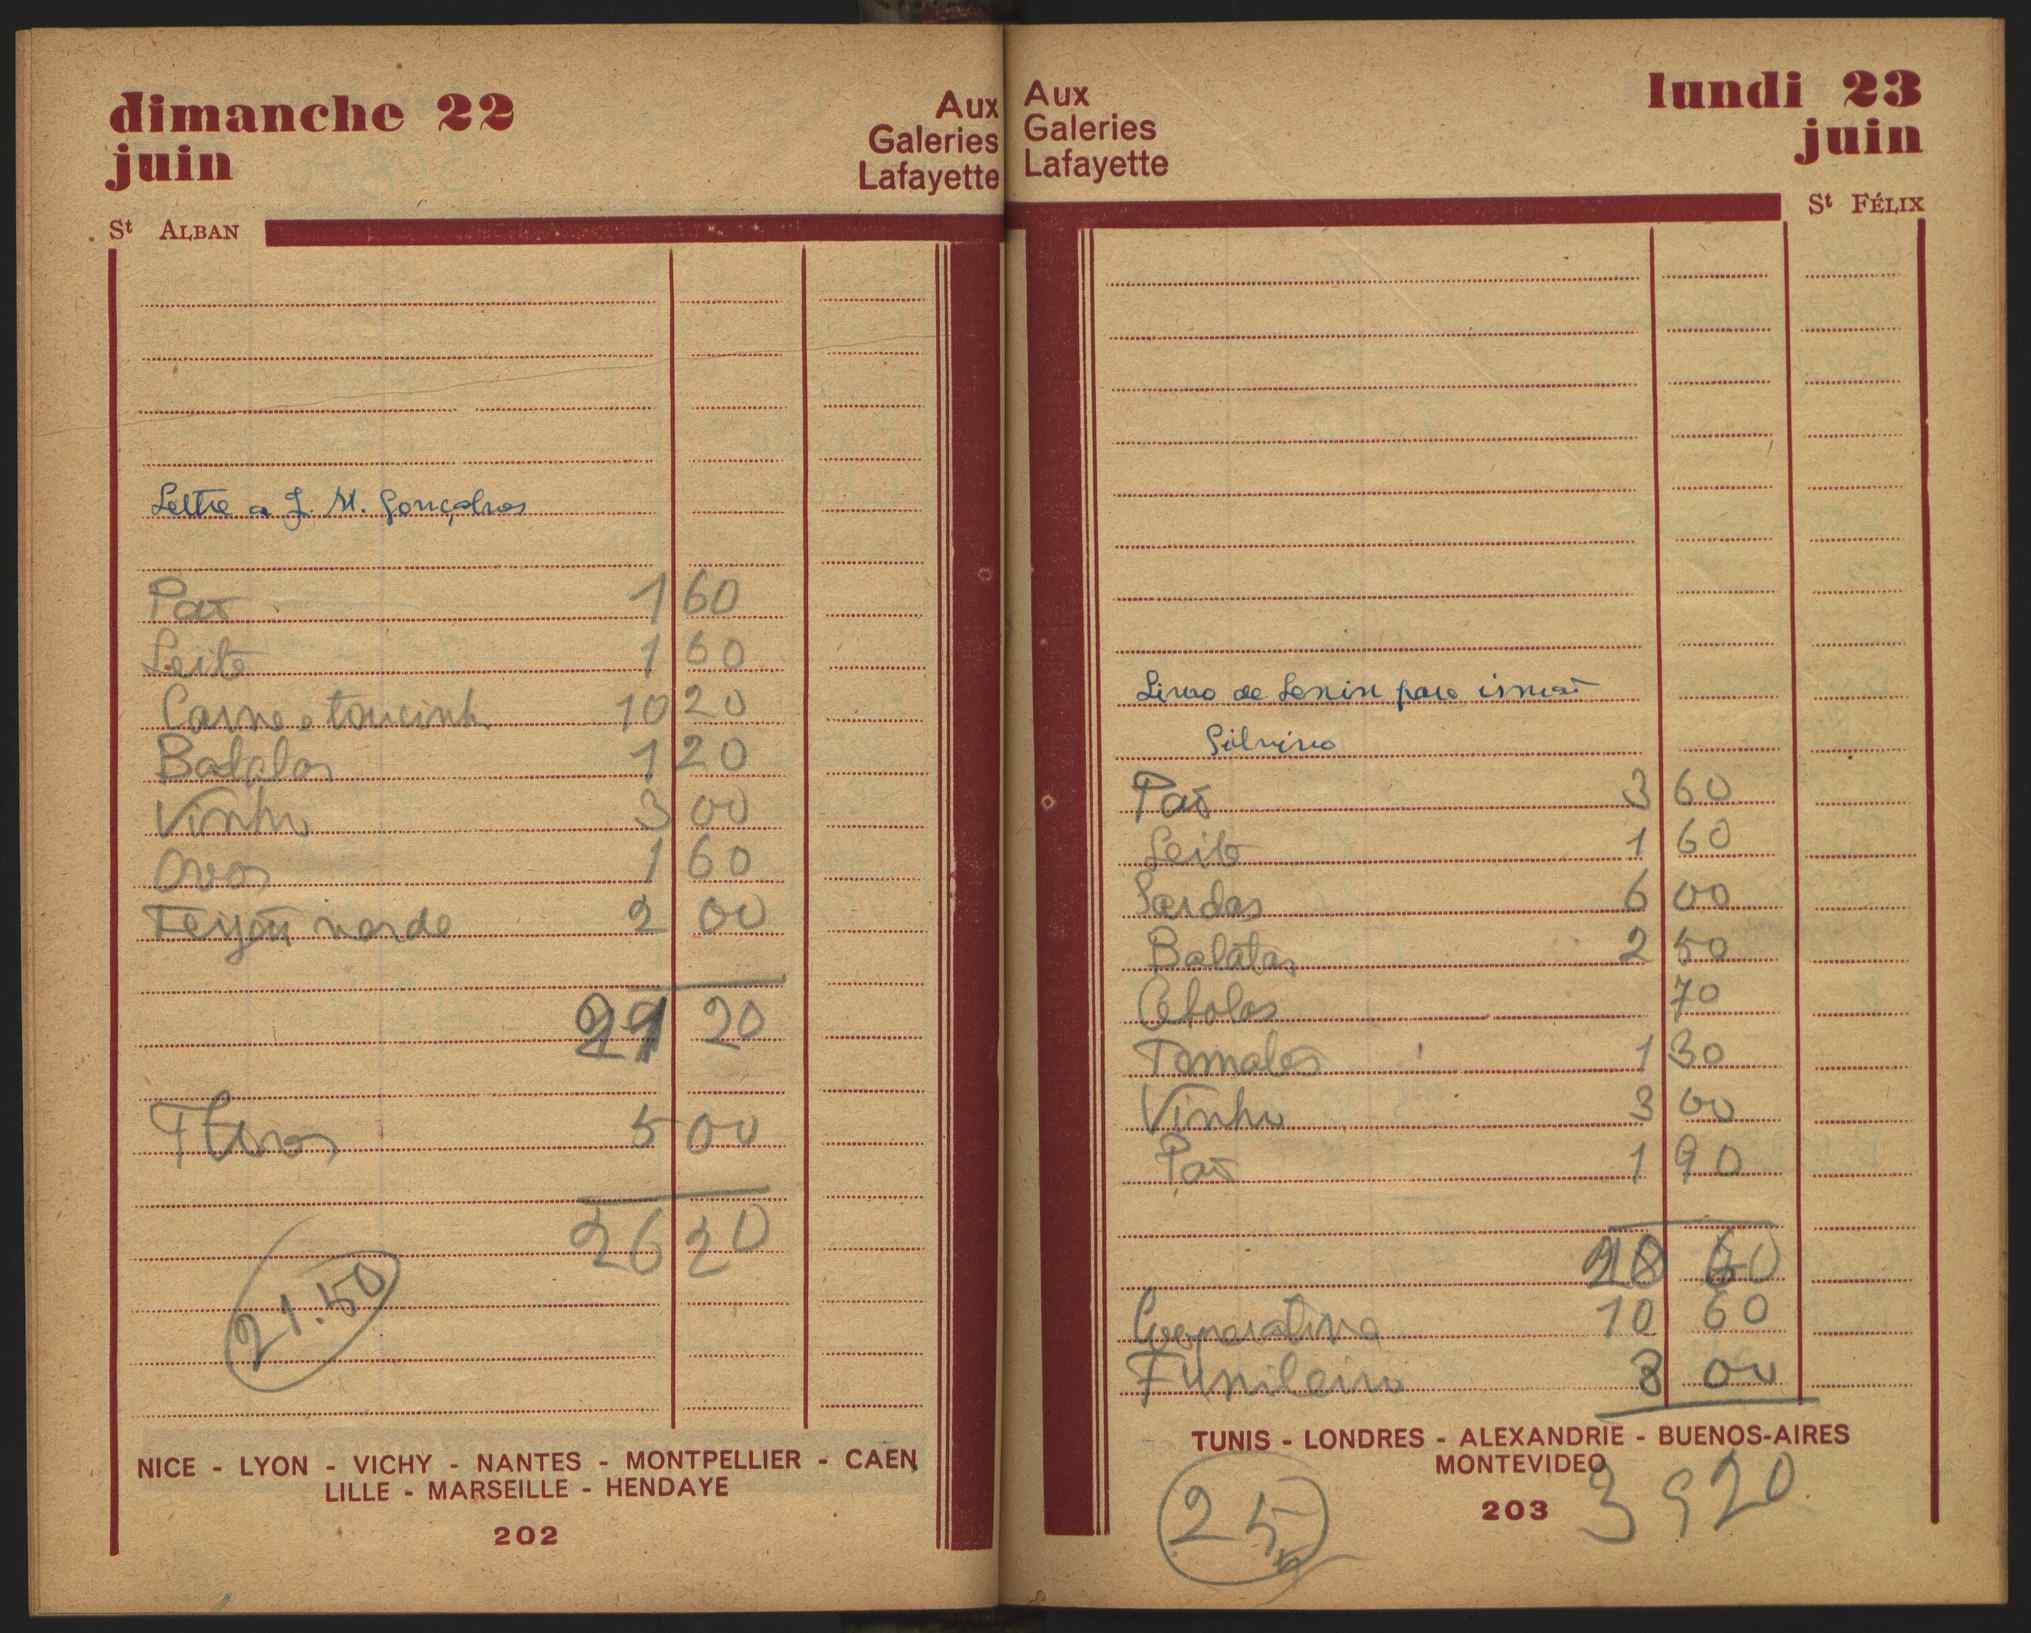 dimanche 22
juin
Aux
Galeries
Lafayette
St ALBAN
Lettre a J. M. Gonçalves
Pão 1 60
Leite 1 60
Carne e toucinh. 10 20
Batatas 1 20
Vinho 3 00
Ovos 1 60
Feijão verde 2 00
21 20
5 00
26 20
21.50
NICE - LYON - VICHY - NANTES - MONTPELLIER - CAEN
LILLE - MARSEILLE - HENDAYE
202
Aux
Galeries
Lafayette
lundi 23
juin
St FÉLIX
Livro de Lenin para irmão
Silvino
Pão 3 60
Leite 1 60
Sardas 6 00
Batatas 2 50
Cebolas 70
Tomates 1 30
Vinho 3 00
Pão 1 90
60
Cooperativa 10 60
Funileiro 8 00
TUNIS - LONDRES - ALEXANDRIE - BUENOS-AIRES
MONTEVIDEO
203
39 20
25